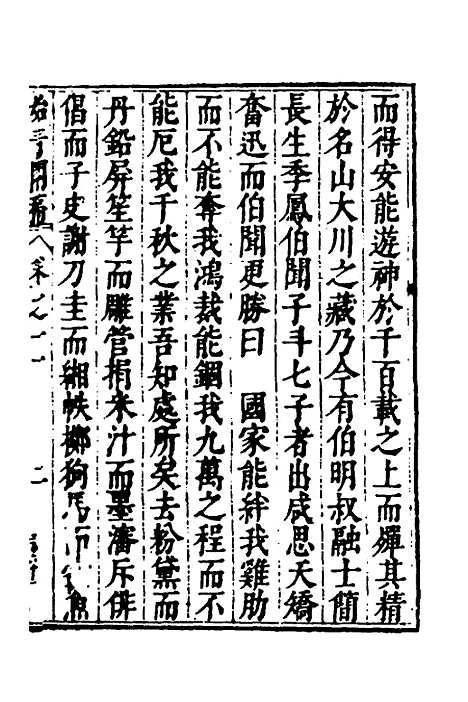 而得安能遊神於千百載之上而燀其精
於名山大川之藏乃今有伯明叔融士簡
長生季鳳伯聞子斗七子者出咸思天矯
奮迅而伯聞更勝曰　國家能絆我雞肋
而不能奪我鴻裁能錮我九萬之程而不
能厄我千秋之業吾知處所矣去粉黛而
丹鉛屏笙竽而雕管捐米汁而墨瀋斥俳
倡而子史謝刀圭而緗帙擲狗馬而
卷之一 二